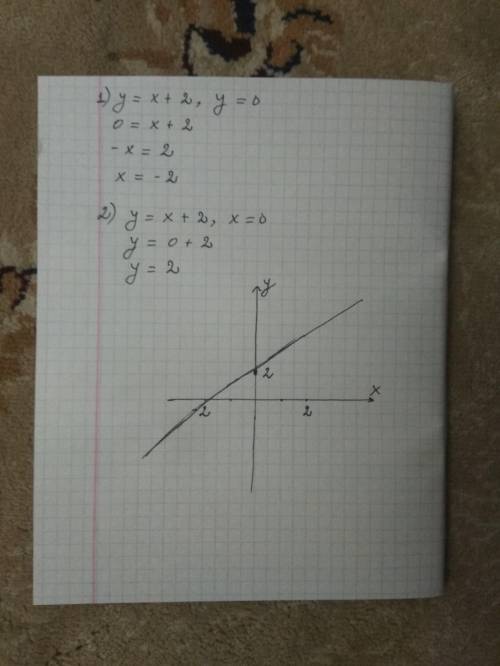 1) y = x + 2, y = 0
0 = x + 2
-x = 2
x = -2
2) y = x + 2, x = 0
y = 0 + 2
y = 2
y
2
x
-2
2